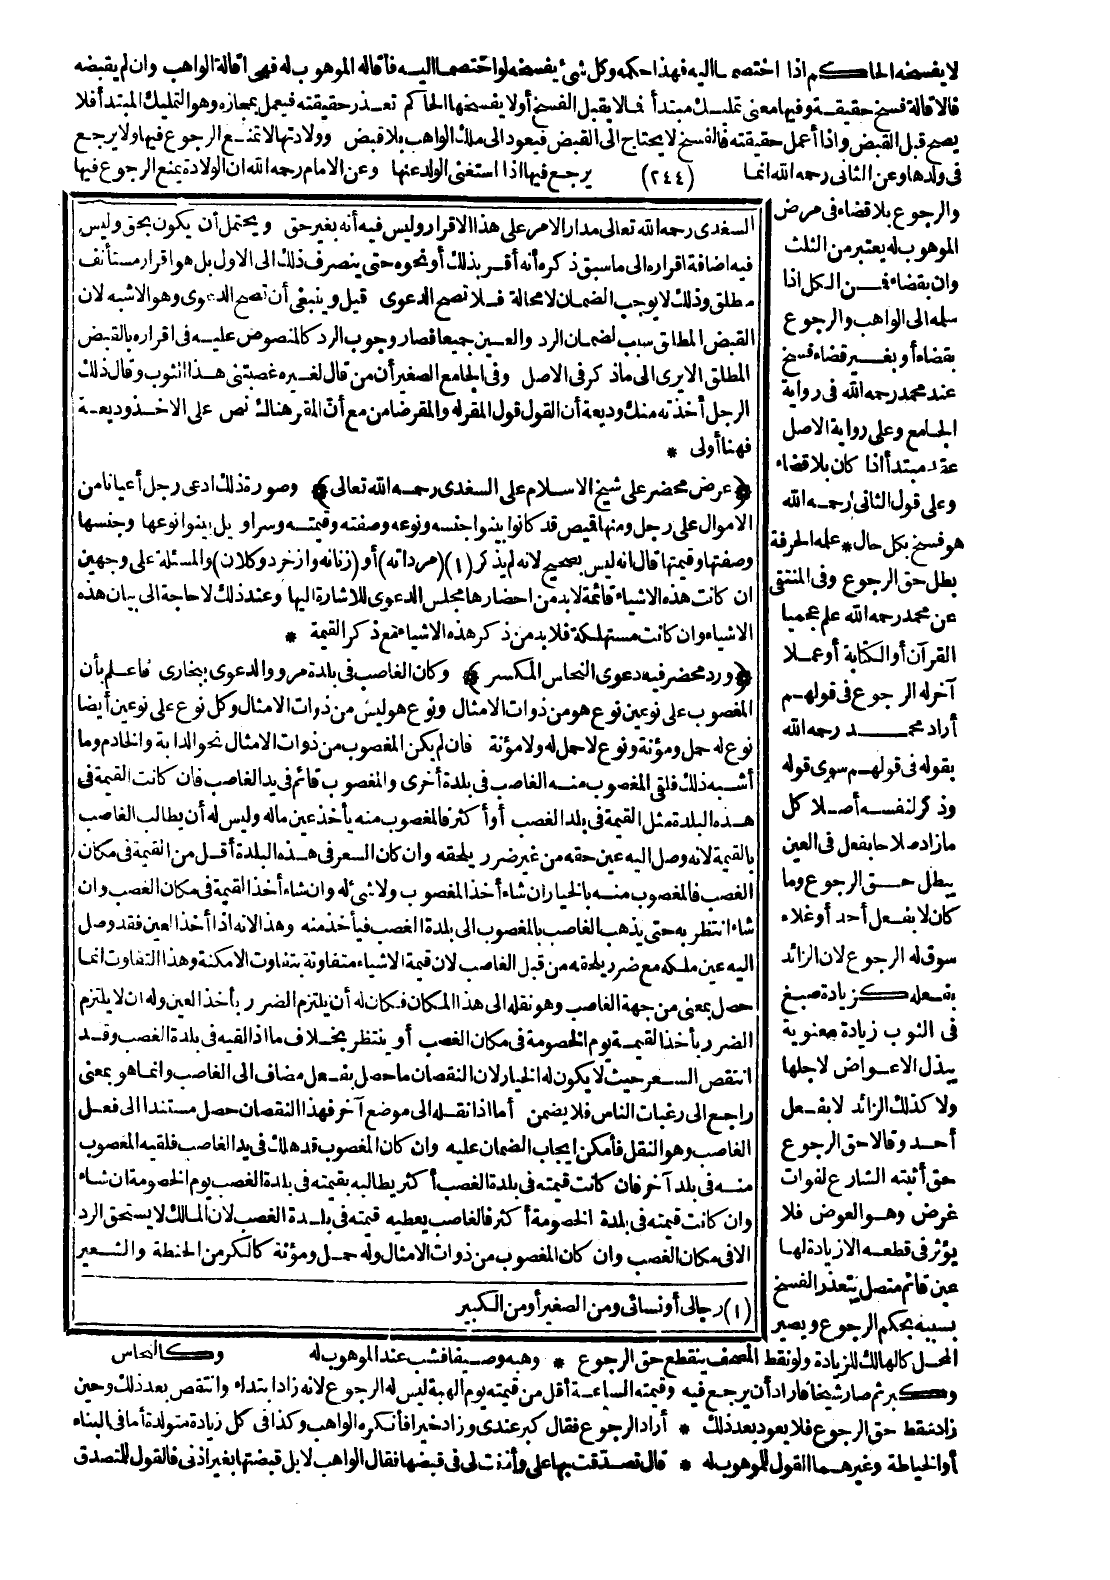 لا يفسخه الحاكم اذا اختصما اليه فهذا حكمه وكل شئ يفسخه لو اختصما اليه فأقاله الموهوب له فهى اقالة الواهب وان لم يقبضه
فالاقالة فسخ حقيقة وفيها معنى تمليك مبتدأ فما لا يقبل الفسخ أو لا يفسخها الحاكم تعذر حقيقته فيعمل بمجازه وهو التمليك المبتدأ فلا
يصح قبل القبض واذا أعمل حقيقته فالفسخ لا يحتاج الى القبض فيعود الى ملك الواهب بلا قبض وولادتها لا تمنع الرجوع فيها ولا يرجع
فى ولدها وعن الثانى رحمه الله انما (٢٤٤) يرجع فيها اذا استغنى الولد عنها وعن الامام رحمه الله ان الولادة يمنع الرجوع فيها
والرجوع بلا قضاء فى مرض
الموهوب له يعتبر من الثلث
وان بقضاء فمن الكل اذا
سلمه الى الواهب والرجوع
بقضاء أو بغير قضاء فسخ
عند محمد رحمه الله فى رواية
الجامع وعلى رواية الاصل
عقد مبتدأ اذا كان بلا قضاء
وعلى قول الثانى رحمه الله
هو فسخ بكل حال * علمه الحرفة
بطل حق الرجوع وفى المنتقى
عن محمد رحمه الله علم عجميا
القرآن أو الكتابة أو عملا
آخر له الرجوع فى قولهم
أراد محمد رحمه الله
بقوله فى قولهم سوى قوله
وذكر لنفسه أصلا كل
ما زاد صلاحا بفعل فى العين
يبطل حق الرجوع وما
كان لا بفعل أحد أو غلاء
سوق له الرجوع لان الزائد
بفعله كزيادة صبغ
فى الثوب زيادة معنوية
يبذل الاعواض لاجلها
ولا كذلك الزائد لا بفعل
أحد وقالا حق الرجوع
حق أثبته الشارع لفوات
غرض وهو العوض فلا
يؤثر فى قطعه الا زيادة لها
عين قائم متصل يتعذر الفسخ
بسببه بحكم الرجوع ويصير
السغدى رحمه الله تعالى مدار الامر على هذا الاقرار وليس فيه أنه بغير حق ويحتمل أن يكون بحق وليس
فيه اضافة اقراره الى ما سبق ذكره أنه أقر بذلك أو نحوه حتى ينصرف ذلك الى الاول بل هو اقرار مستأنف
مطلق وذلك لا يوجب الضمان لا محالة فلا تصح الدعوى قيل وينبغى أن تصح الدعوى وهو الاشبه لان
القبض المطلق سبب لضمان الرد والعين جميعا فصار وجوب الرد كالمنصوص عليه فى اقراره بالقبض
المطلق الا يرى الى ما ذكر فى الاصل وفى الجامع الصغير أن من قال لغيره غصبتنى هذا الثوب وقال ذلك
الرجل أخذته منك وديعة أن القول قول المقر له والمقر ضامن مع أن المقر هناك نص على الاخذ وديعة
فهنا أولى *
﴿عرض محضر على شيخ الاسلام على السغدى رحمه الله تعالى﴾ وصورة ذلك ادعى رجل أعيانا من
الاموال على رجل ومنها قميص قد كانوا بينوا جنسه ونوعه وصفته وقيمته وسراويل بينوا نوعها وجنسها
وصفتها وقيمتها قال انه ليس بصحيح لانه لم يذكر (١) (مردانه) أو (زنانه واز خرد وكلان) والمسئلة على وجهين
ان كانت هذه الاشياء قائمة لا بد من احضارها مجلس الدعوى للاشارة اليها وعند ذلك لا حاجة الى بيان هذه
الاشياء وان كانت مستهلكة فلا بد من ذكر هذه الاشياء مع ذكر القيمة *
﴿ورد محضر فيه دعوى النحاس المكسر﴾ وكان الغاصب فى بلدة مرو والدعوى ببخارى فاعلم بأن
المغصوب على نوعين نوع هو من ذوات الامثال ونوع هو ليس من ذوات الامثال وكل نوع على نوعين أيضا
نوع له حمل ومؤنة ونوع لا حمل له ولا مؤنة فان لم يكن المغصوب من ذوات الامثال نحو الدابة والخادم وما
أشبه ذلك فلقى المغصوب منه الغاصب فى بلدة أخرى والمغصوب قائم فى يد الغاصب فان كانت القيمة فى
هذه البلدة مثل القيمة فى بلد الغصب أو أكثر فالمغصوب منه يأخذ عين ماله وليس له أن يطالب الغاصب
بالقيمة لانه وصل اليه عين حقه من غير ضرر يلحقه وان كان السعر فى هذه البلدة أقل من القيمة فى مكان
الغصب فالمغصوب منه بالخيار ان شاء أخذ المغصوب ولا شئ له وان شاء أخذ القيمة فى مكان الغصب وان
شاء انتظر به حتى يذهب الغاصب بالمغصوب الى بلدة الغصب فيأخذ منه وهذا لانه اذا أخذ العين فقد وصل
اليه عين ملكه مع ضرر يلحقه من قبل الغاصب لان قيمة الاشياء متفاوتة بتفاوت الامكنة وهذا التفاوت انما
حصل بمعنى من جهة الغاصب وهو نقله الى هذا المكان فكان له أن يلتزم الضرر بأخذ العين وله ان لا يلتزم
الضرر بأخذ القيمة يوم الخصومة فى مكان الغصب أو ينتظر بخلاف ما اذا لقيه فى بلدة الغصب وقد
انتقص السعر حيث لا يكون له الخيار لان النقصان ما حصل بفعل مضاف الى الغاصب وانما هو بمعنى
راجع الى رغبات الناس فلا يضمن أما اذا نقله الى موضع آخر فهذا النقصان حصل مستندا الى فعل
الغاصب وهو النقل فأمكن ايجاب الضمان عليه وان كان المغصوب قد هلك فى يد الغاصب فلقيه المغصوب
منه فى بلد آخر فان كانت قيمته فى بلدة الغصب أكثر يطالبه بقيمته فى بلدة الغصب يوم الخصومة ان شاء
وان كانت قيمته فى بلدة الخصومة أكثر فالغاصب يعطيه قيمته فى بلدة الغصب لان المالك لا يستحق الرد
الا فى مكان الغصب وان كان المغصوب من ذوات الامثال وله حمل ومؤنة كالكر من الحنطة والشعير
(١) رجالى أو نسائى ومن الصغير أو من الكبير
المحل كالهالك للزيادة ولو نقط المصحف ينقطع حق الرجوع * وهبه وصيفا فشب عند الموهوب له وكالنحاس
وكبر ثم صار شيخا فأراد أن يرجع فيه وقيمته الساعة أقل من قيمته يوم الهبة ليس له الرجوع لانه زاد ابتداء وانتقص بعد ذلك وحين
زاد سقط حق الرجوع فلا يعود بعد ذلك * أراد الرجوع فقال كبر عندى وزاد خيرا فأنكره الواهب وكذا فى كل زيادة متولدة أما فى البناء
أو الخياطة وغيرهما القول للموهوب له * قال تصدقت بها على وأذنت لى فى قبضها فقال الواهب لا بل قبضتها بغير اذنى فالقول للمتصدق